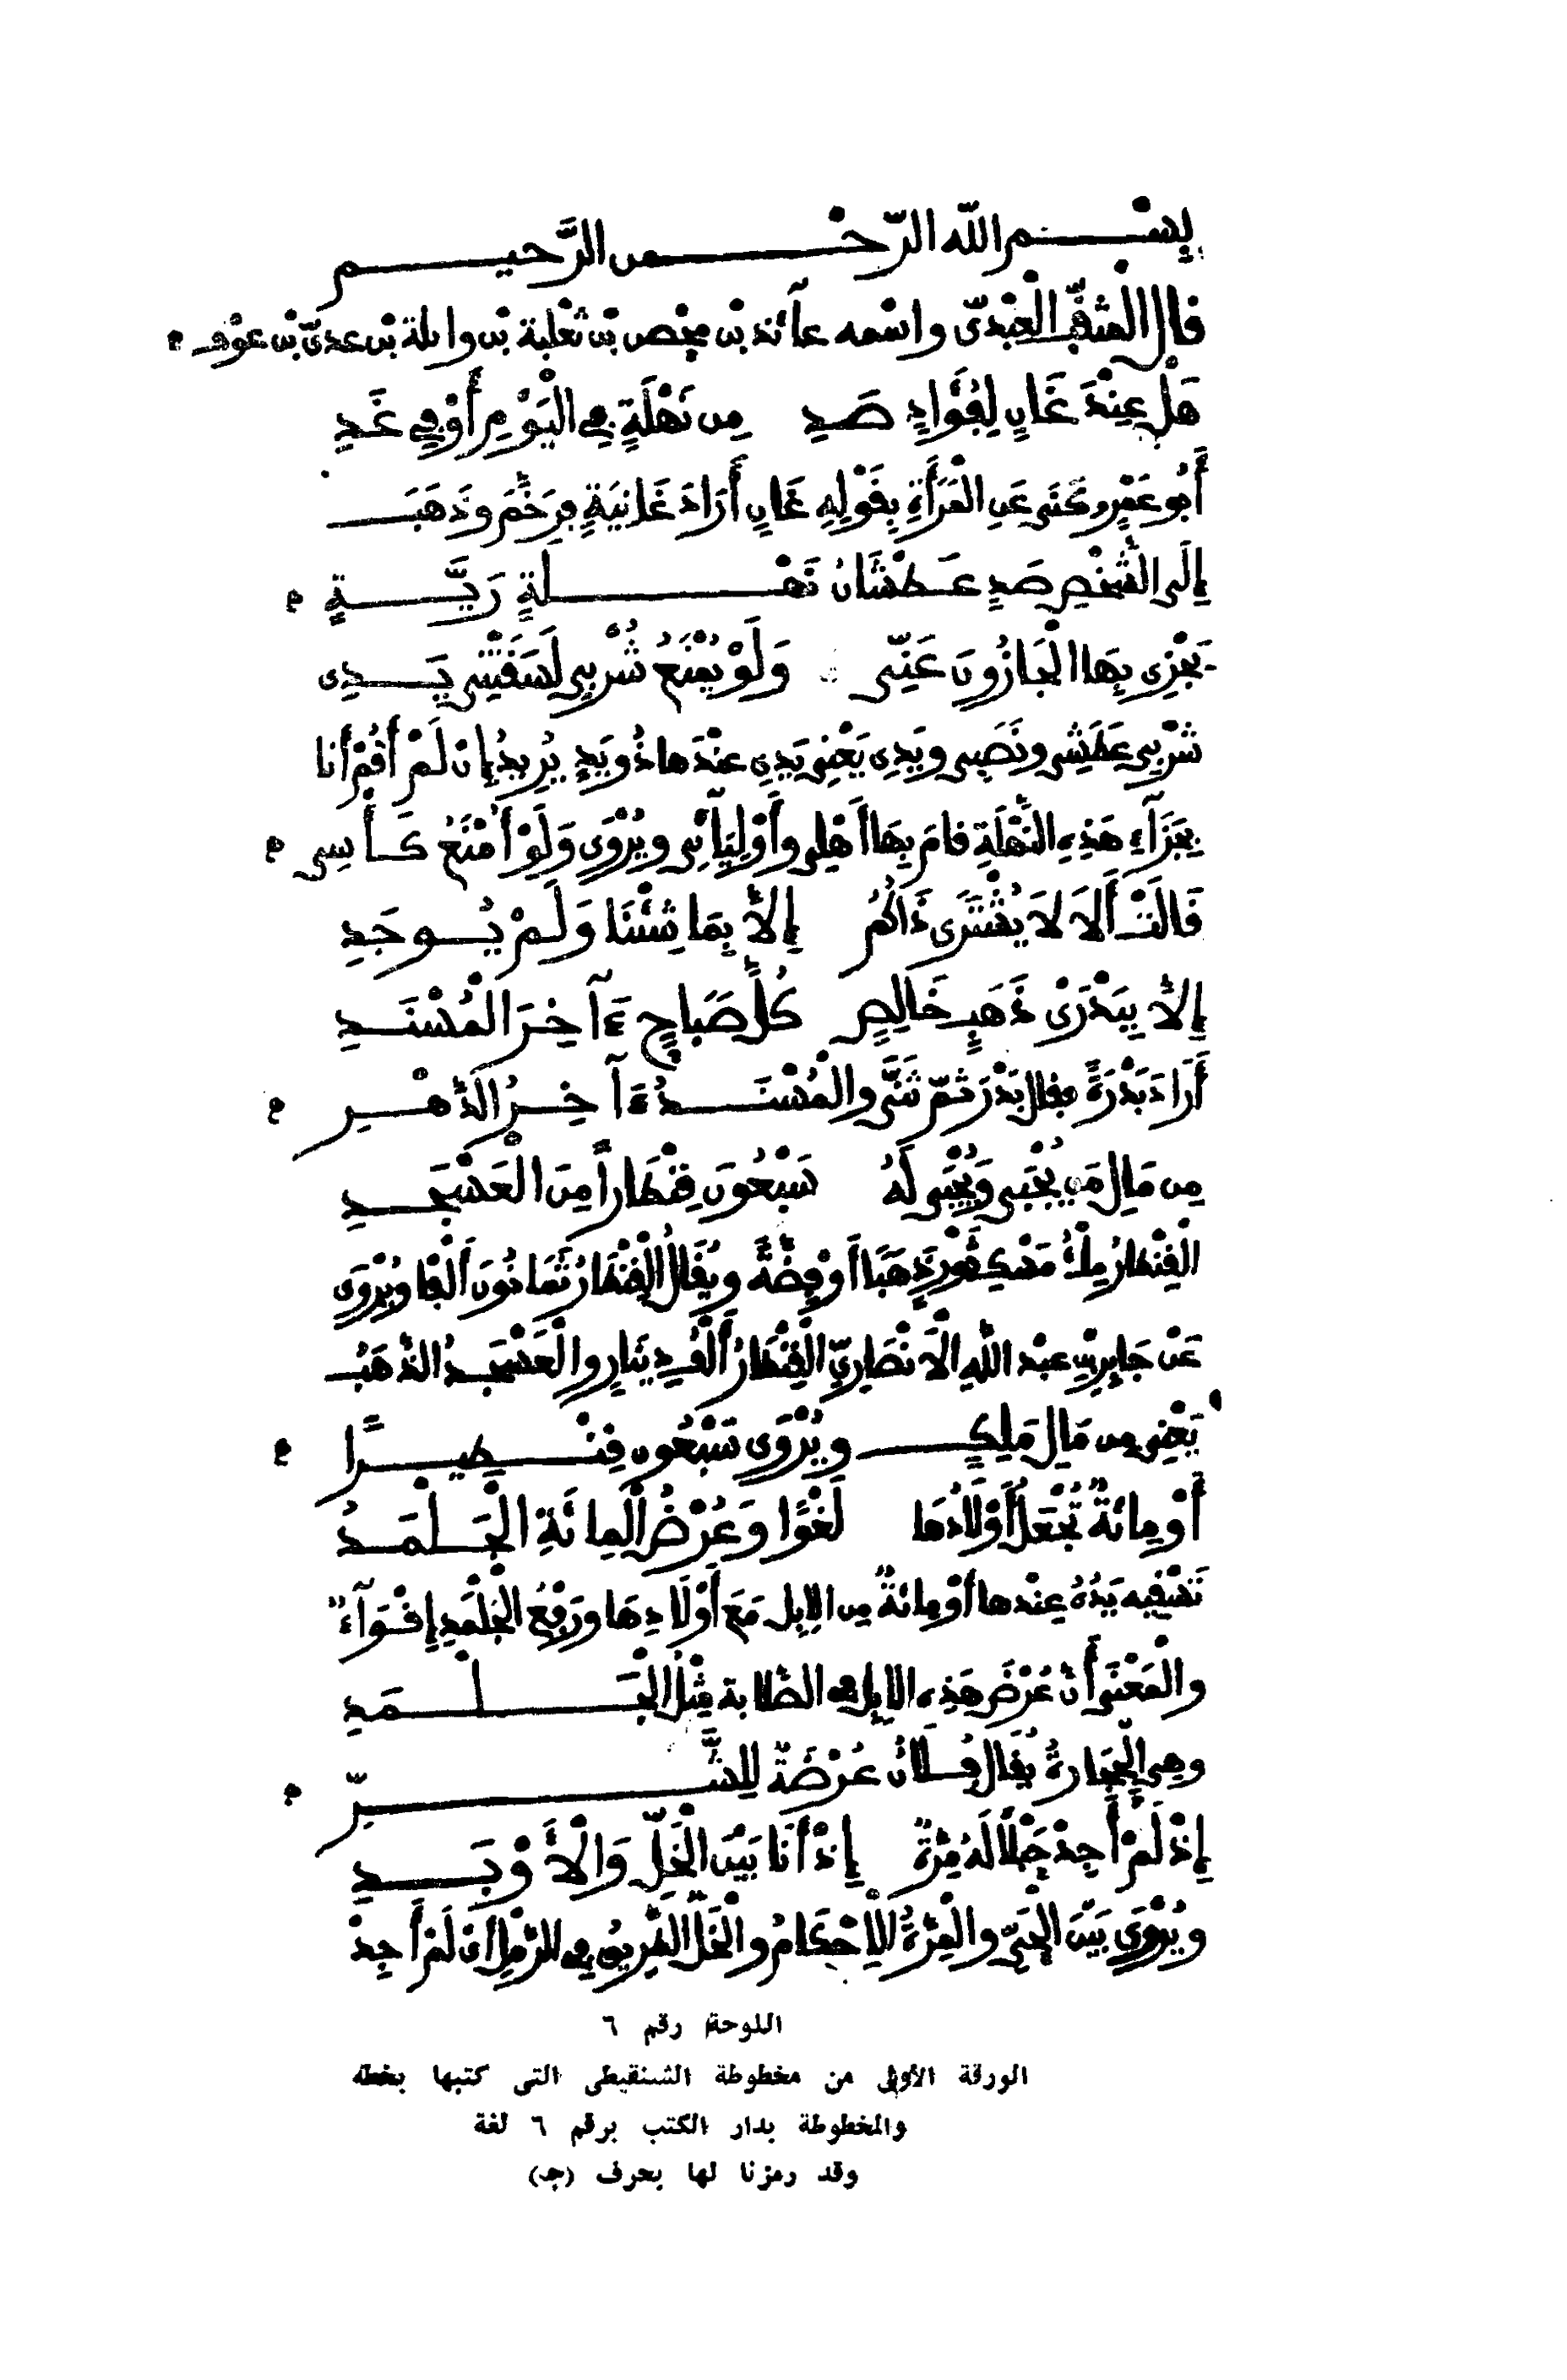 بِسْمِ اللّه الرّحْمن الرَّحيم
قال الْمثقِّب الْعَبْدىّ واسْمه عآئذ بْن مِحْصن بْن ثعْلبة بْن وا ئلة بْن عدىّ بْن عوْف م
هَلْ عِنْدَ غَانٍ لِفُؤَادٍ صَدِ مِن نَهْلَةٍ فِي الْيَوْمِ أَوْ فِي غَدِ
أَبُو عَمْرٍو كَنَى عَنِ الْمَرْأَةِ بِقَوْلِهِ غَانٍ أَرَادَ غَانِيَةٍ فَرَخَّمَ وَذَهَبَ
إِلَى الشَّخْصِ صَدٍ عَطْشَانُ نَهْلَةٍ رَيَّةٍ م
يَجْزِى بِهَا الْجَازُونَ عَنِّى وَلَوْ يُمْنَعُ شُرْبِى لَسَقَتْنِى يَدِى
شُرْبِى عَطَشِى ونَصِبى ويَدِى يَعْنِى يَدِى عنْدَها ذُو يَدٍ يُرِيدُ إِن لَمْ أَقُمْ أَنا
بِجَزَآءِ هَذِهِ النَّهْلَةِ قامَ بِهَا أَهْلِى وأَوْلِيَآئى ويُرْوَى وَلَوْ أُمْنَعُ كَأْسِى م
قَالَتْ أَلاَ لاَ يُشْتَرَى ذَاكُمُ إِلاَّ بِمَا شِئْنَا وَلَمْ يُوجَدِ
إِلاَّ بِبَدْرَىْ ذَهَبٍ خَالِصٍ كُلَّ صَبَاحٍ ءَآخِرَ الْمُسْنَدِ
أَرَادَ بَدْرَةً فقال بَدْرَ ثمّ ثَنَّى والْمُسْنَدُ ءَآخِرُ الدَّهْرِ م
مِن مَالِ مَن يُجْبَى وَيُجْبَى لَهُ سَبْعُونَ قِنْطَاراً مِنَ الْعَسْجَدِ
الْقِنْطارُ مِلْءُ مَسْكِ ثَوْرٍ ذَهَبًا أَوْ فِضَّةً ويُقَالُ الْقِنْطَارُ ثَمَانُونَ أَلْفًا ويُرْوَى
عَنْ جَابِرِ بْنِ عبْد اللَّهِ الْأَنْصَارِيّ الْقِنْطَارُ أَلْفُ دِينَارٍ والْعَسْجَدُ الذَّهَبُ
يَعْنِى مِن مَالِ مَلِكٍ ويُرْوَى سَبْعُون قِنْطِيرًا م
أَوْ مِائةٌ تُجْعَلُ أَوْلَادُهَا لَغْوًا وَعُرْضُ الْمِائَةِ الْجَلْمَدُ
تَسْقِيه يَدُهُ عِنْدها أَوْ مِائةٌ مِن الإِبِل مَعَ أَوْلَادِهَا ورَفْعُ الْجَلْمَدِ إِقْوَآءٌ
والْمَعْنَى أَنَّ عُرْضَ هَذِه الإِبِل فى الصَّلابة مِثْلُ الْجَلْمَدِ
وهِىَ الْحِجَارةُ يُقَال فُلَانٌ عُرْضَةٌ لِلشَّرِّ م
إِذْ لَمْ أَجِدْ حَبْلًا لَهُ مِرَّةٌ إِذْ أَنَا بَيْنَ الْخَلِّ وَالْأَوْبَدِ
ويُرْوَى بَيْنَ الْحَىِّ والْمِرَّةُ الْإِحْكَامُ والْخَلُّ الطَّرِيقُ فِى الرَّمْلِ أَن لَمْ أَجِدْ
اللوحة رقم ٦
الورقة الأولى من مخطوطة الشنقيطى التى كتبها بخطه
والمخطوطة بدار الكتب برقم ٦ لغة
وقد رمزنا لها بحرف (جـ)